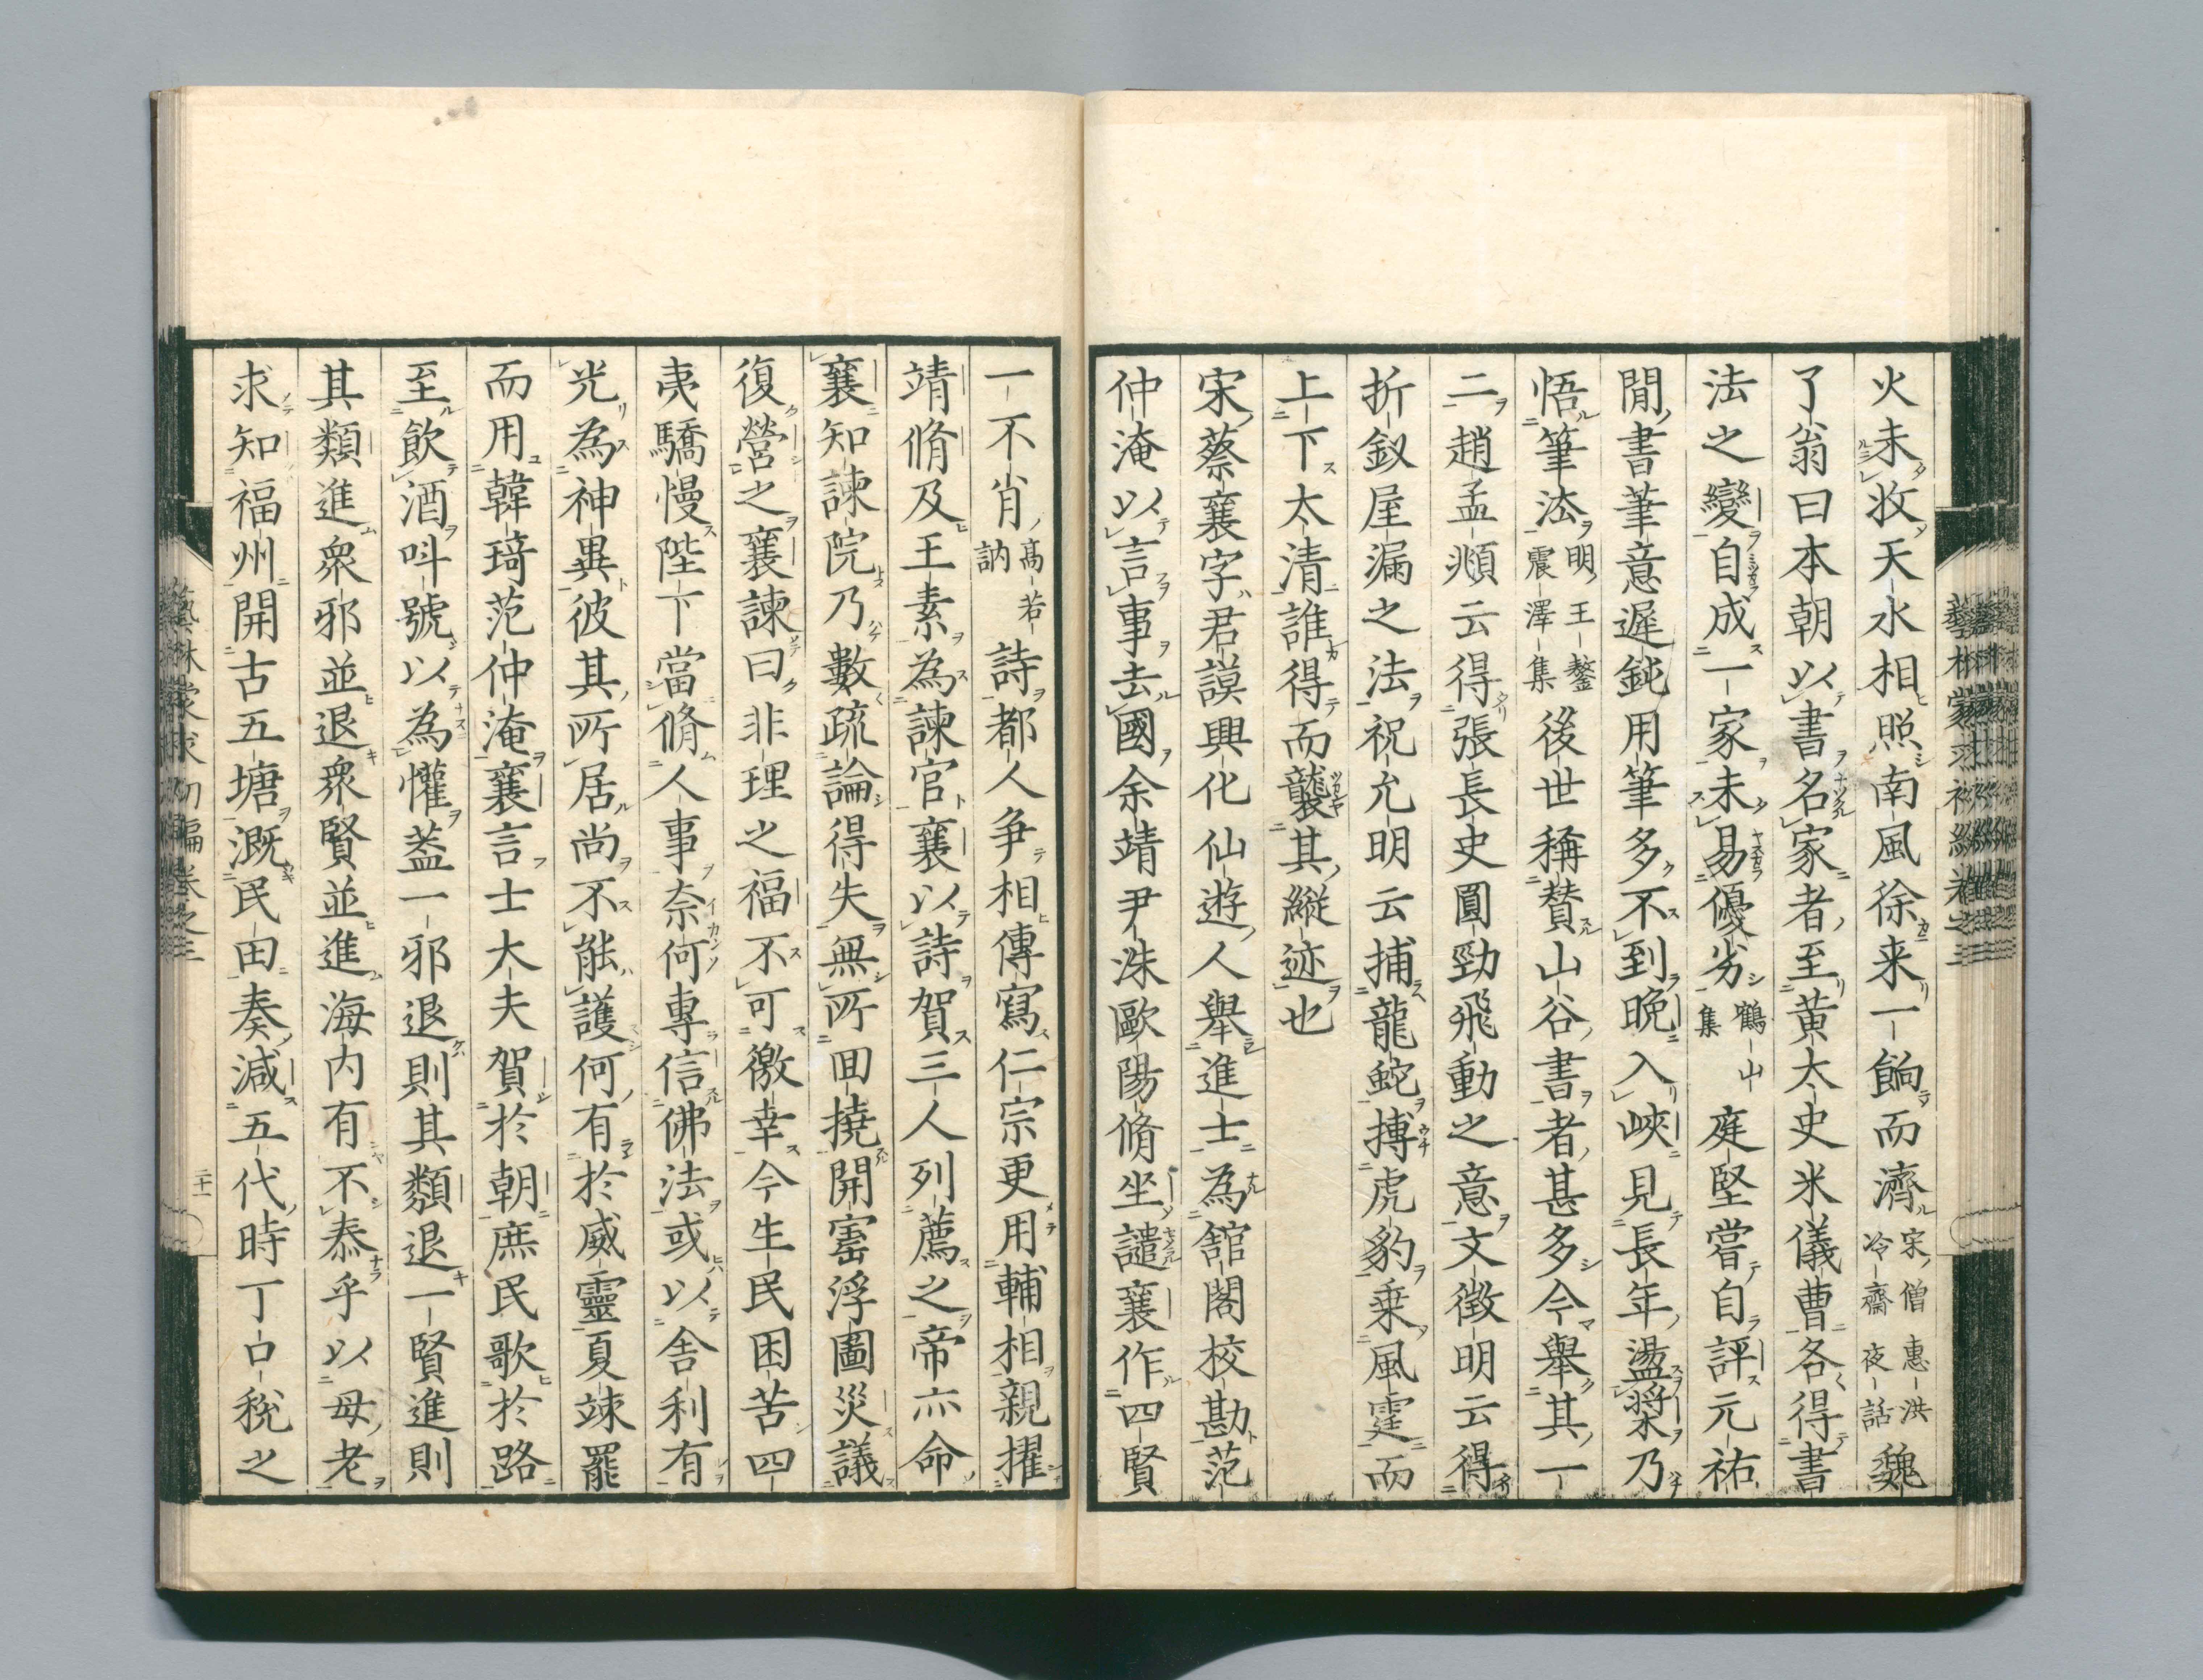 火未收天水相照南風徐来一餉而濟宋僧惠洪冷齋夜話魏
了翁曰本朝以書名家者至黄太史米儀曹各得書
法之變自成一家未易優劣鶴山集庭堅嘗自評元祐
間書筆意遲鈍用筆多不到晩入峽見長年盪槳乃
悟筆法明王鏊震澤集後世稱賛山谷書者甚多今舉其一
二趙孟頫云得張長史圓勁飛動之意文徴明云得
折釵屋漏之法祝允明云捕龍蛇搏虎豹乗風霆而
上下太清誰得而襲其縱迹也
宋蔡襄字君謨興化仙遊人舉進士為舘閣校勘范
仲淹以言事去國余靖尹洙歐陽脩坐譴襄作四賢
一不肖高若訥詩都人爭相傳寫仁宗更用輔相親擢
靖脩及王素為諫官襄以詩賀三人列薦之帝亦命
襄知諫院乃數疏論得失無所囬撓開寳浮圖災議
復營之襄諫曰非理之福不可徼幸今生民困苦四
夷驕慢陛下當脩人事奈何專信佛法或以舎利有
光為神異彼其所居尚不能護何有於威靈夏竦罷
而用韓琦范仲淹襄言士大夫賀於朝庶民歌於路
至飲酒呌號以為懽葢一邪退則其類退一賢進則
其類進衆邪並退衆賢並進海内有不泰乎以母老
求知福州開古五塘溉民田奏減五代時丁口稅之
藝林蒙求初編卷之三
二十一